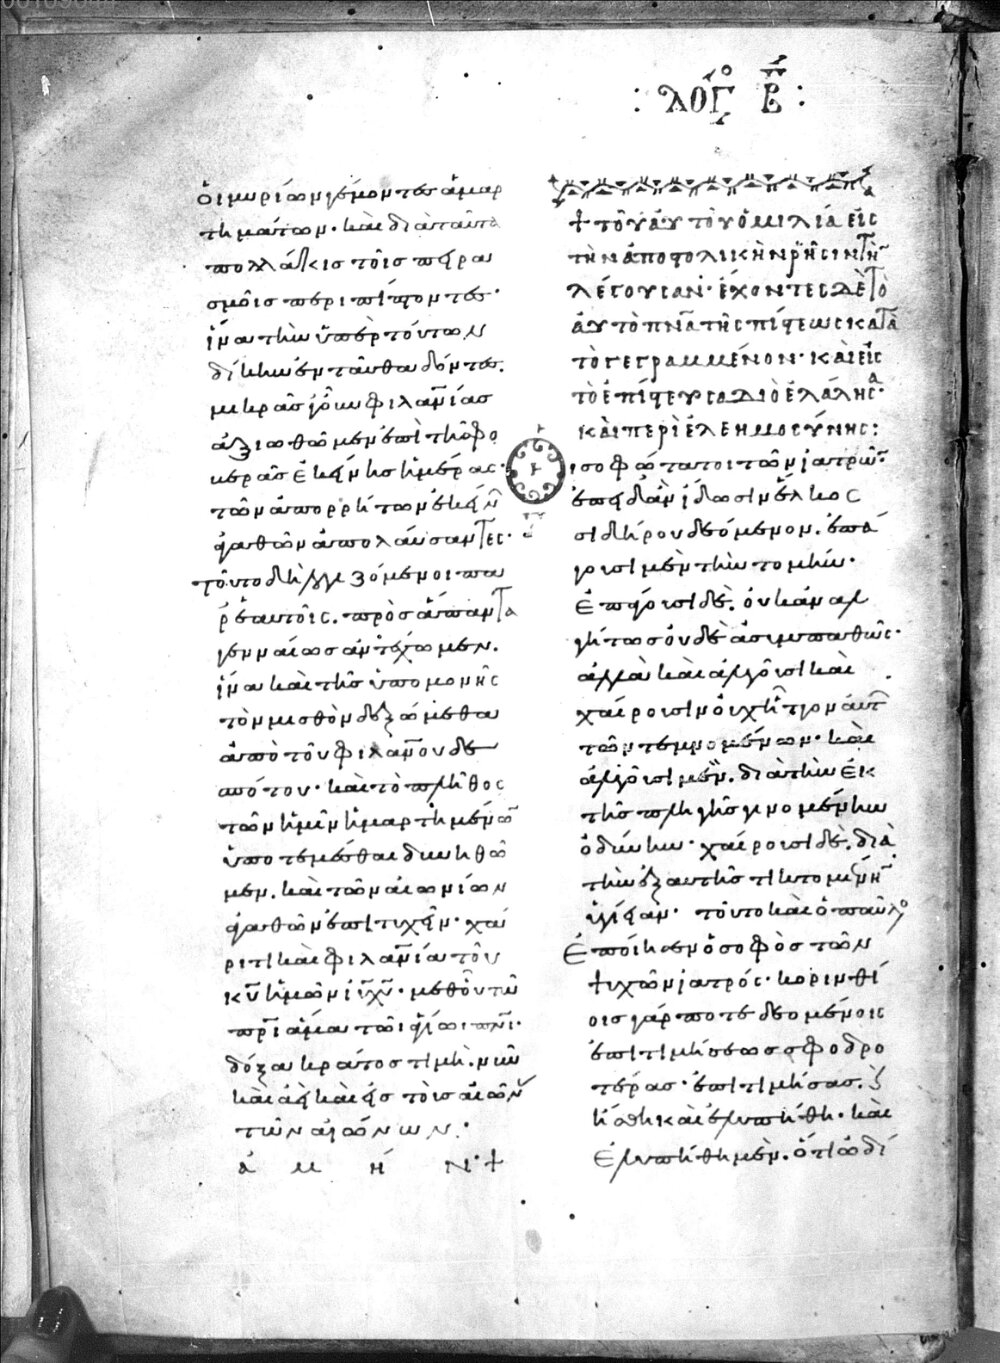 : λόγ⁰ Β̅ :
οἱ μυρίων γέμοντες ἁμαρ
τημάτων· καὶ διὰ ταῦτα
πολλάκις τοῖς πειρα
σμοῖς περιπίπτοντες·
ἵνα τὴν ὑπὲρ τούτων
δίκην ἐνταῦθα δόντες.
μικρᾶς γοῦν φιλαν̅ίας
ἀξιωθῶμεν ἐπὶ τῆς φο
βερᾶς ἐκείνης ἡμέρας·
τῶν ἀπορρήτων ἐκείν̅
ἀγαθῶν ἀπολαύσαντες·
τοῦτο λογιζόμενοι πα
ρ' ἑαυτοῖς. πρὸς ἅπαντα
γενναίως ἀντέχωμεν.
ἵνα καὶ τῆς ὑπομονῆς
τὸν μισθὸν δεξώμεθα
ἀπὸ τοῦ φιλαν̅ου δε
σπότου· καὶ τὸ πλῆθος
τῶν ἡμῖν ἡμαρτημένω̅
ὑποτεμέσθαι δυνηθῶ
μεν. καὶ τῶν αἰωνίων
ἀγαθῶν ἐπιτυχεῖν· χάι
ριτι καὶ φιλαν̅ία τοῦ
κ̅υ ἡμῶν ἰ̅υ χ̅υ· μεθ' οὗ τῶ
π̅ρι ἅμα τῶι ἁγίωι π̅νι·
δόξα κράτος τιμὴ. νῦν
καὶ ἀεὶ καὶ εἰς τοὺς αἰῶν̅
τῶν αἰώνων·
ἀ μ ή Ν·+
+ τοῦ αὐτοῦ ὁμιλία εἰς
τὴν ἀποστολικὴν ῥῆσιν τὴν
λέγουσαν· ἔχοντες δὲ τὸ
αὐτὸ π̅να τῆς πίστεως κατὰ
τὸ γεγραμμένον· καὶ εἰς
τὸ ἐπίστευσα διὸ ἐλάλησα·
καὶ περὶ ἐλεημοσύνης:
οἱ σοφώτατοι τῶν ἰατρῶν·
ἐπειδὰν ἴδωσιν ἕλκος
σιδήρου δεόμενον. ἐπά
γουσι μὲν τὴν τομήν·
ἐπάγουσι δὲ. οὐκ ἀναλ
γήτως οὐδὲ ἀσυμπαθῶς·
ἀλλὰ καὶ ἀλγοῦσι καὶ
χαίρουσιν οὐχ ἧττον αὐτ̅
τῶν τεμνομένων· καὶ
ἀλγοῦσι μὲν. διὰ τὴν ἐκ
τῆς πληγῆς γινομένην
ὀδύνην· χαίρουσι δὲ. διὰ
τὴν ἐξ αὐτῆς τικτομένη̅
ὑγίειαν· τοῦτο καὶ ὁ παῦλο
ἐποίησεν ὁ σοφὸς τῶν
ψυχῶν ἰατρός· κορινθί
οις γάρ ποτε δεομένοις
ἐπιτιμήσεως σφοδρο
τέρας· ἐπιτιμήσας. καὶ
ἥσθη καὶ ἐλυπήθη· καὶ
ἐλυπήθη μὲν. ὅτι ὠδύ